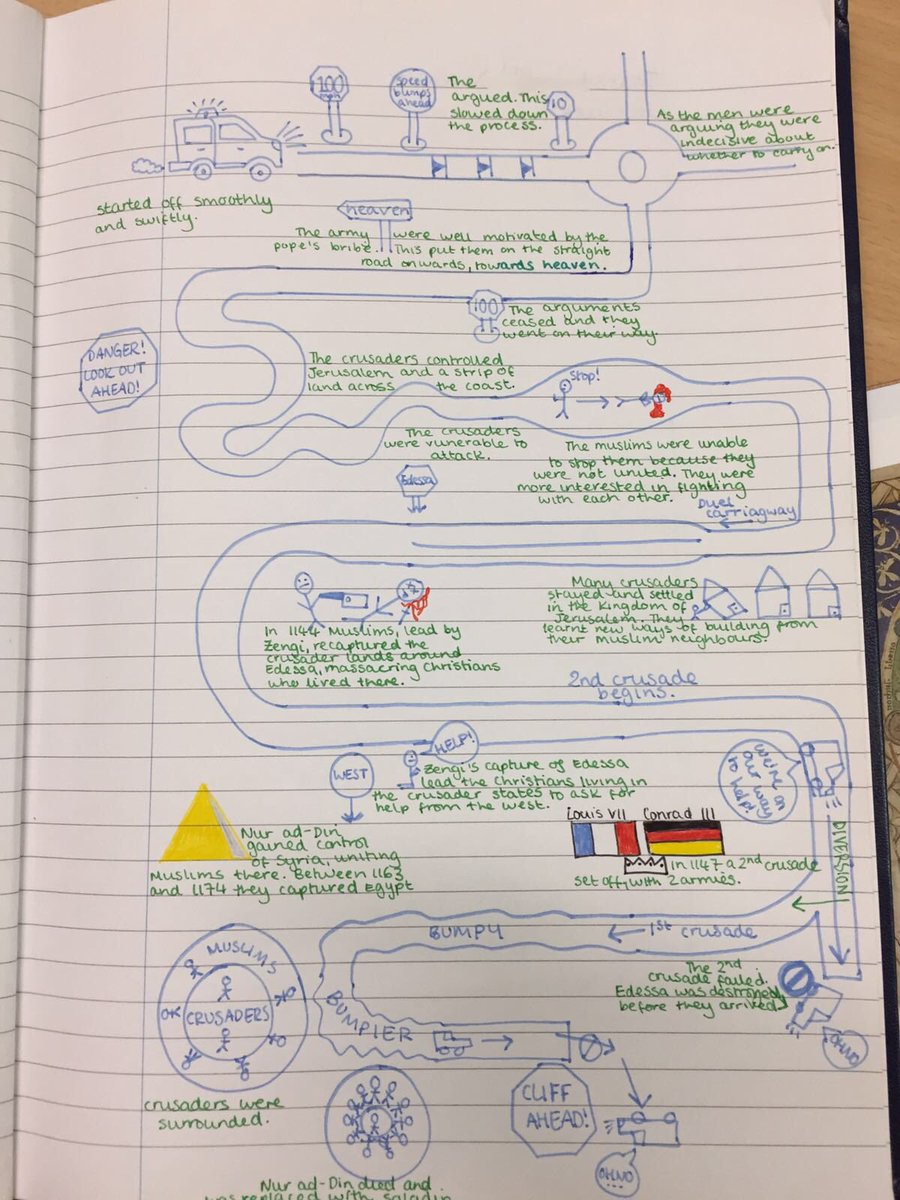 100
speed
bumps
ahead
The
argued. This
slowed down
the process.
10
As the men were
arguing they were
indecisive about
whether to carry on.
started off smoothly
and swiftly.
heaven
The army were well motivated by the
pope's bribe. This put them on the straight
road onwards, towards heaven.
100
The arguments
ceased and they
went on their way.
DANGER!
LOOK OUT
AHEAD!
The crusaders controlled
Jerusalem and a strip of
land across the coast.
Stop!
The crusaders
were vunerable to
attack.
The muslims were unable
to stop them because they
were not united. They were
more interested in fighting
with each other.
Edessa
Duel
carriagway
In 1144 Muslims, lead by
Zengi, recaptured the
crusader lands around
Edessa, massacring Christians
who lived there.
Many crusaders
stayed and settled
in the Kingdom of
Jerusalem. They
learnt new ways of building from
their muslim neighbours.
2nd crusade
begins.
HELP!
WEST
Zengi's capture of Edessa
lead the Christians living in
the crusader states to ask for
help from the west.
we're on
our way
to help!
DIVERSION!
Louis VII Conrad III
in 1147 a 2nd crusade
set off, with 2 armies.
Nur ad-Din
gained control
of Syria, uniting
Muslims there. Between 1163
and 1174 they captured Egypt
BUMPY
1st crusade
The 2nd
crusade failed.
Edessa was destroyed
before they arrived
OH NO
MUSLIMS
CRUSADERS
BUMPIER
crusaders were
surrounded.
CLIFF
AHEAD!
OH NO
...
Nur ad-Din died and
was replaced with saladin